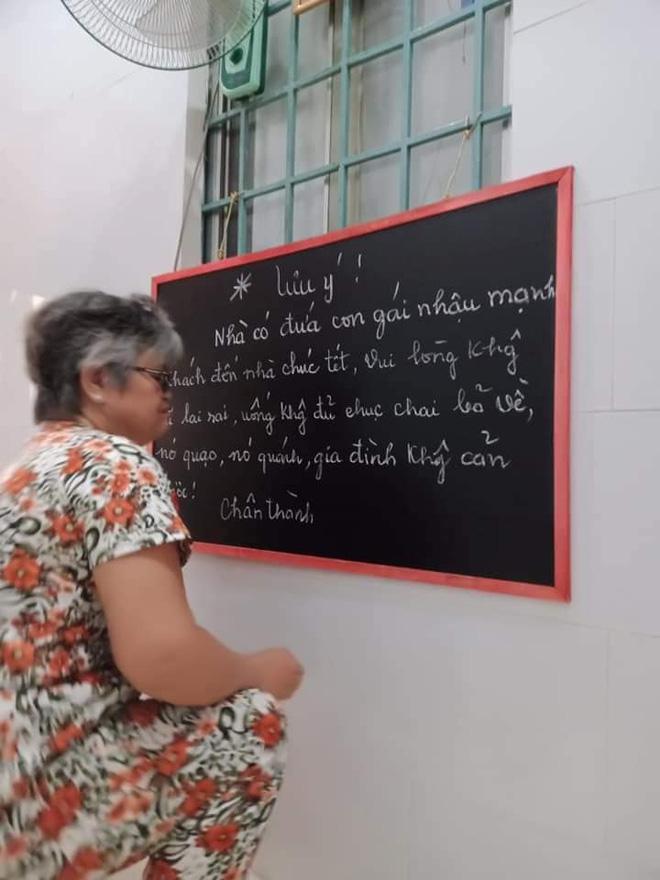 * Lưu ý !
Nhà có đứa con gái nhậu mạnh
khách đến nhà chúc tết, vui lòng khg
lai rai, uống khg đủ chục chai bỏ về,
nó quạo, nó quánh, gia đình khg cản

Chân thành